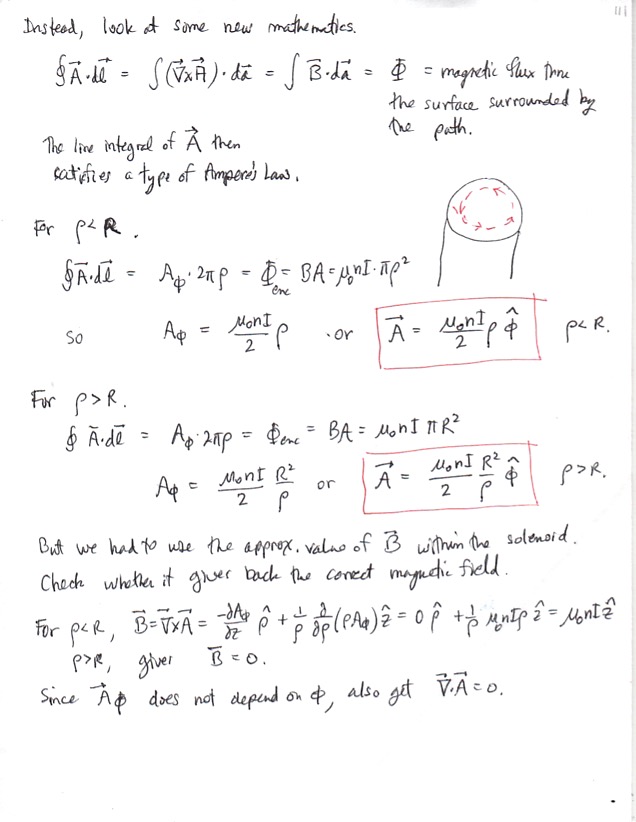 111
Instead, look at some new mathematics.
∮A⃗·dl⃗ = ∫(∇⃗×A⃗)·da⃗ = ∫B⃗·da⃗ = Φ = magnetic flux thru
the surface surrounded by
the path.
The line integral of A⃗ then
satisfies a type of Ampere's Law.
For ρ<R.
∮A⃗·dl⃗ = A_ϕ·2πρ = Φ_enc = BA = μ₀nI·πρ²
so A_ϕ = μ₀nI/2 ρ or A⃗ = μ₀nI/2 ρ ϕ̂ ρ<R.
For ρ>R.
∮A⃗·dl⃗ = A_ϕ·2πρ = Φ_enc = BA = μ₀nI πR²
A_ϕ = μ₀nI/2 R²/ρ or A⃗ = μ₀nI/2 R²/ρ ϕ̂ ρ>R.
But we had to use the approx. value of B⃗ within the solenoid.
Check whether it gives back the correct magnetic field.
For ρ<R, B⃗=∇⃗×A⃗ = -∂A_ϕ/∂z ρ̂ + 1/ρ ∂/∂ρ(ρA_ϕ)ẑ = 0 ρ̂ + 1/ρ μ₀nIρ ẑ = μ₀nI ẑ
ρ>R, gives B⃗ = 0.
Since A⃗_ϕ does not depend on ϕ, also get ∇⃗·A⃗ = 0.